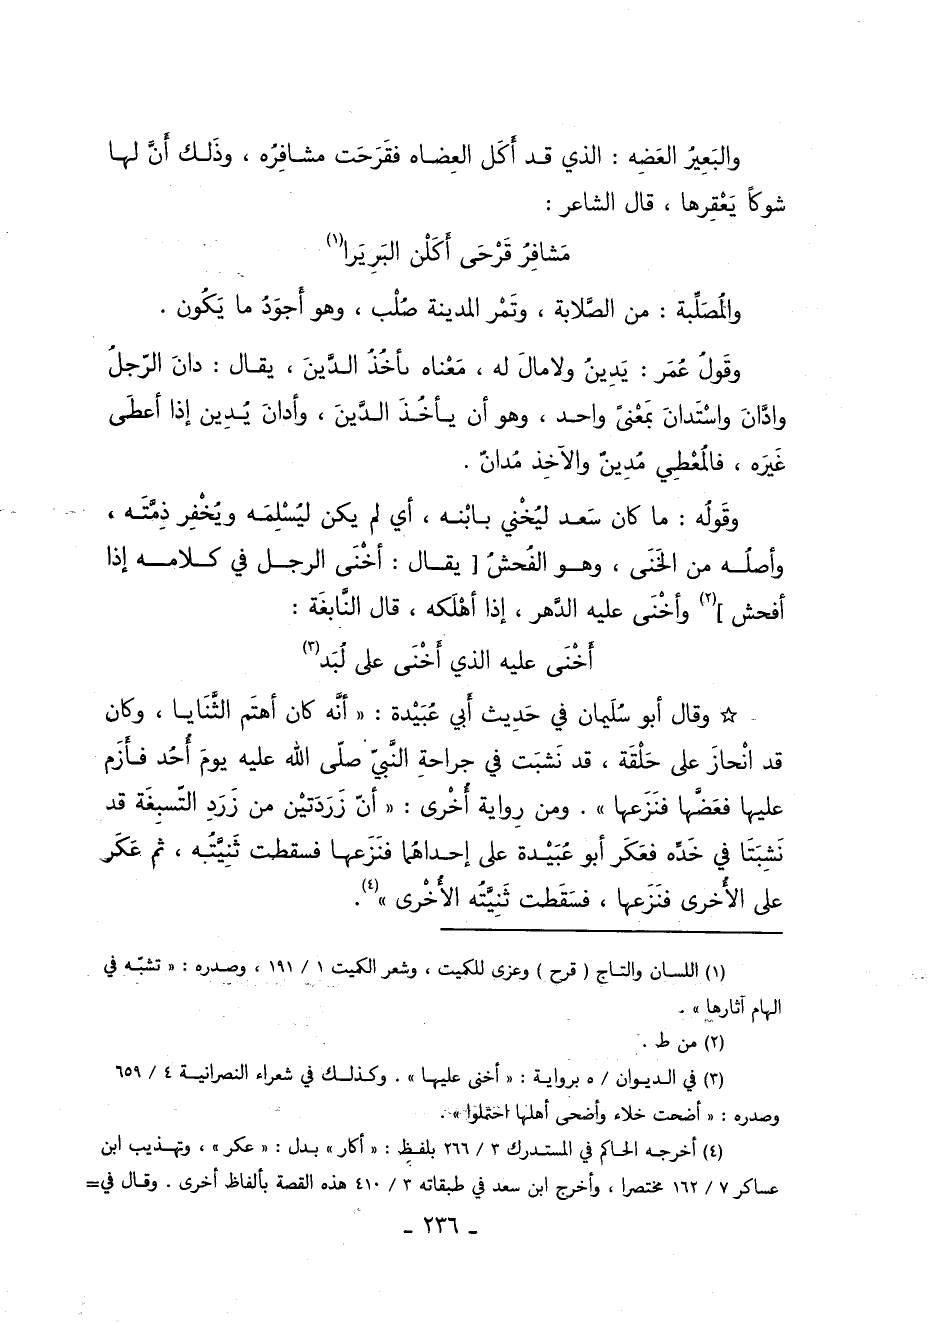 والبَعِيرُ العَضِه : الذي قد أَكَل العِضاه فقَرَحَت مشافِرُه ، وذَلك أَنَّ لها
شوكاً يَعْقِرها ، قال الشاعر :
مَشافِرُ قَرْحَى أَكَلْن البَرِيَرا(١)
والمُصَلِّبة : من الصَّلابة ، وتَمْر المدينة صُلْب ، وهو أَجوَدُ ما يَكُون .
وقَولُ عُمَر : يَدِينُ ولامالَ له ، مَعْناه يأخُذُ الدَّينَ ، يقال : دانَ الرّجلُ
وادَّانَ واسْتَدانَ بمَعْنىً واحد ، وهو أن يأخُذَ الدَّينَ ، وأدانَ يُدِين إذا أعطَى
غَيَره ، فالمُعْطِي مُدِينٌ والآخِذ مُدانٌ .
وقَولُه : ما كان سَعد ليُخْنِي بابْنه ، أي لم يكن ليُسْلِمَه ويُخْفِر ذِمَّتَه ،
وأصلُه من الخَنَى ، وهو الفُحشُ [ يقال : أخْنَى الرجل في كلامه إذا
أفحش ](٢) وأخْنَى عليه الدَّهر ، إذا أهْلَكه ، قال النَّابِغَة :
أَخْنَى عليه الذي أَخْنَى على لُبَد(٣)
☆ وقال أبو سُليمان في حَدِيث أَبي عُبَيْدة : « أنَّه كان أهتَم الثَّنَايا ، وكان
قد انْحازَ على حَلْقَة ، قد نَشبَت في جراحةِ النَّبيّ صلّى الله عليه يومَ أُحُد فأَزم
عليها فعَضَّها فنَزَعها » . ومن رواية أُخْرى : « أنّ زَرَدَتيْن من زَرَدِ التّسبِغَة قد
نَشِبَتَا في خَدِّه فعَكَر أبو عُبَيْدة على إحداهُما فنَزَعها فسقطت ثَنِيَّتُه ، ثم عَكَر
على الأُخرى فنَزَعها ، فسَقَطت ثَنِيَّتُه الأُخْرى »(٤).
(١) اللسان والتاج ( قرح ) وعزى للكميت ، وشعر الكميت ١ / ١٩١ ، وصدره : « تشبّه في
الهام آثارها » .
(٢) من ط .
(٣) في الديوان / ٥ برواية : « أخنى عليها » . وكذلك في شعراء النصرانية ٤ / ٦٥٩
وصدره : « أضحت خلاء وأضحى أهلها احتملوا » .
(٤) أخرجه الحاكم في المستدرك ٣ / ٢٦٦ بلفظ : « أكار » بدل : « عكر » ، وتهذيب ابن
عساكر ٧ / ١٦٢ مختصرا ، وأخرج ابن سعد في طبقاته ٣ / ٤١٠ هذه القصة بألفاظ أخرى . وقال في=
- ٢٣٦ -